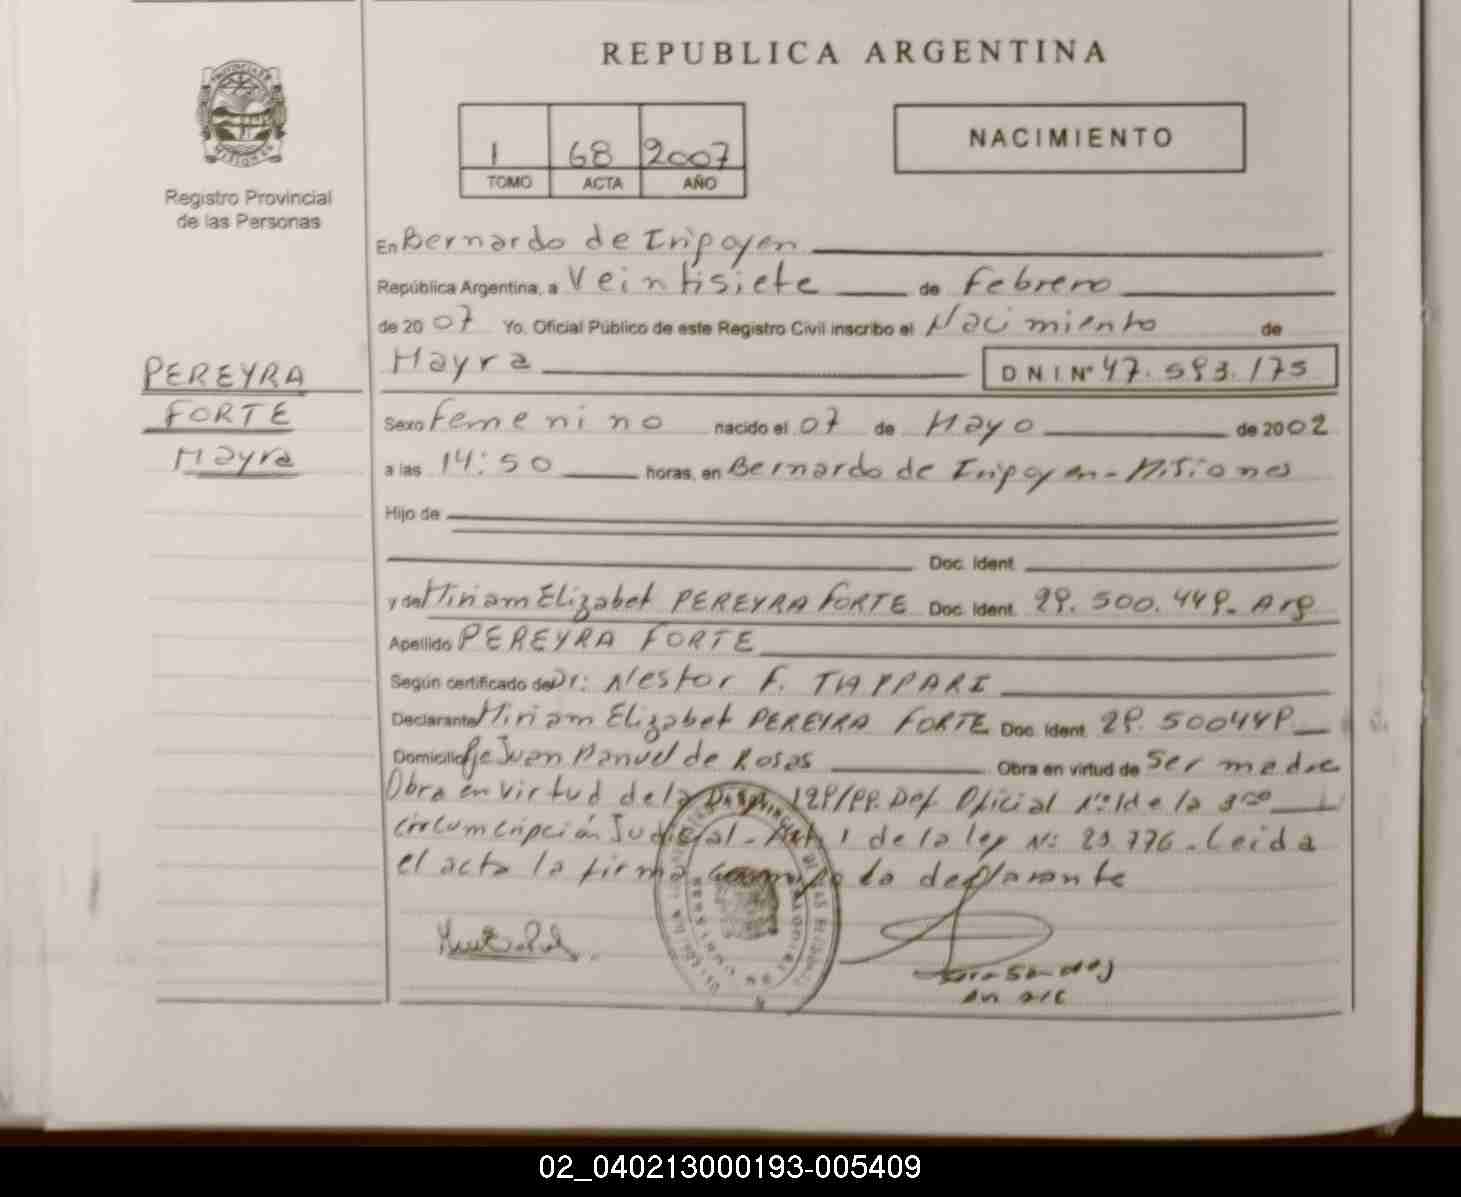 REPUBLICA ARGENTINA
1 68 2007
TOMO ACTA AÑO
NACIMIENTO
Registro Provincial
de las Personas
En Bernardo de Irigoyen
República Argentina, a Veintisiete de Febrero
de 2007 Yo, Oficial Público de este Registro Civil inscribo el Nacimiento de
Mayra D N I Nº 47.593.175
PEREYRA
FORTE
Mayra
Sexo Femenino nacido el 07 de Mayo de 2002
a las 14:50 horas, en Bernardo de Irigoyen - Misiones
Hijo de
Doc. Ident.
y de Miriam Elizabet PEREYRA FORTE Doc. Ident. 29.500.449. Arg
Apellido PEREYRA FORTE
Según certificado de Dr: Nestor F. TIAPPARI
Declarante Miriam Elizabet PEREYRA FORTE Doc. Ident. 29.500449
Domicilio Juan Manuel de Rosas Obra en virtud de Ser madre
Obra en virtud de la Disp. 129/99. Def. Oficial Nº 1 de la 3ra
circumcripción Judicial - Art 1 de la ley Nº 23.776. Leida
el acta la firma la declarante
02_040213000193-005409